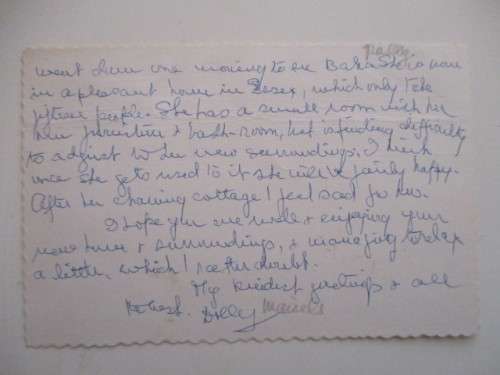 went down one morning to see Baba. She is now
in a pleasant home in Essex, which only take
fifteen people. She has a small room with her
own furniture & bath-room, but is finding difficulty
to adjust to her new surroundings. I think
once she gets used to it she will be fairly happy.
After her charming cottage I feel sad for her.
I hope you are well & enjoying your
new home & surroundings, & managing to relax
a little, which I rather doubt.
My kindest greetings & all
the best. Dolly